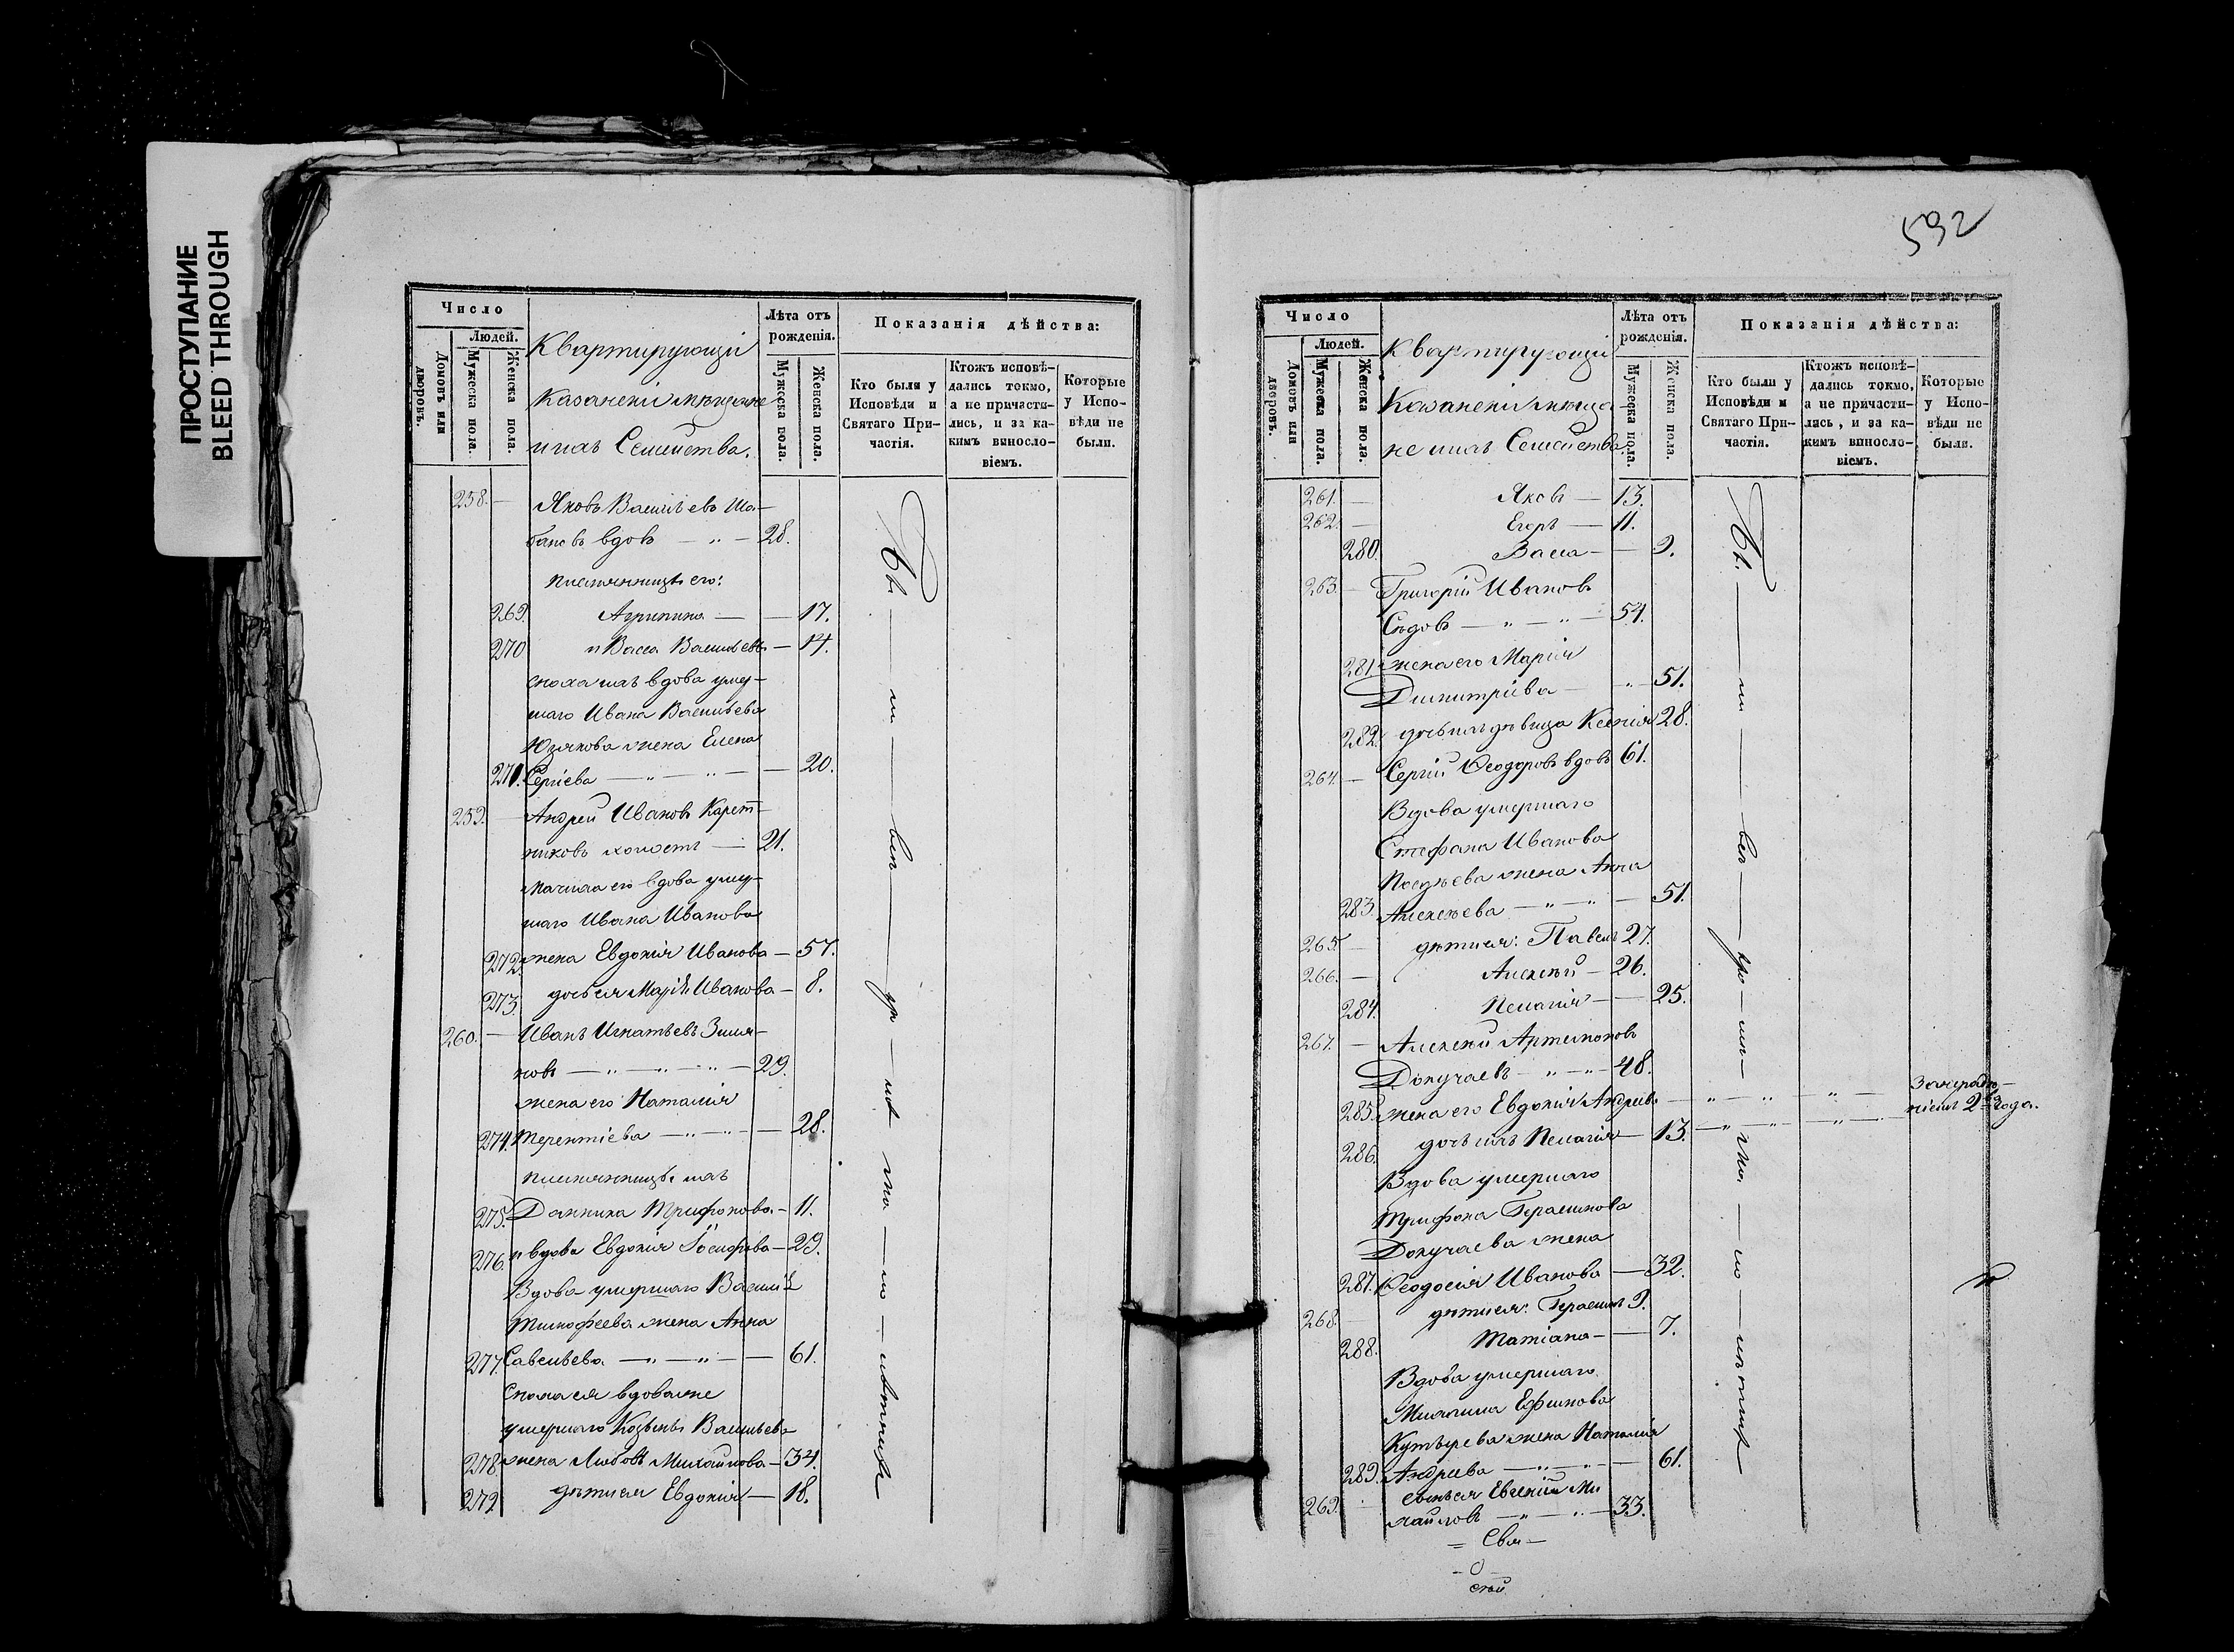 ПРОСТУПАНИЕ
BLEED THROUGH
Число
Людей.
Домовъ или дворовъ.
Мужеска пола.
Женска пола.
Квартирующіи
Казанскіи мѣщане
и ихъ Семейства.
Лѣта отъ рожденія.
Мужеска пола.
Женска пола.
Показанія дѣйства:
Кто были у Исповѣди и Святаго Причастія.
Ктожъ исповѣ-
дались токмо,
а не причасти-
лись, и за ка-
кимъ винословіемъ.
Которые
у Испо-
вѣди не
были.
258. — Яковъ Васильевъ Ша-
бановъ вдовъ — „ — 28.
племянницы его:
269. Агрипина — — 17.
270 и Васса Васильевы — 14.
сноха ихъ вдова умер-
шаго Ивана Васильева
жена Елена
271. Сергіева — „ — „ — 20.
259. — Андрей Ивановъ Карет-
никовъ холостъ — 21.
Мачиха его вдова умер-
шаго Ивана Иванова
272. жена Евдокія Иванова — 57.
273. дочь ея Марія Иванова — 8.
260. — Иванъ Игнатьевъ Зиля-
ковъ — „ — „ — „ — 29.
жена его Наталія
274. Терентіева — „ — „ — 28.
племянницы ихъ
275. Домника Трифонова — 11.
276. и вдова Евдокія Іосифова — 29.
Вдова умершаго Василія
Тимофеева жена Анна
277. Савельева — „ — „ — 61.
Сноха ея вдова же
умершаго Козьмы Васильева
278. жена Любовь Михайлова — 34.
279 дѣти ея Евдокія — 18.
592
Число
Людей.
Домовъ или дворовъ.
Мужеска пола.
Женска пола.
Квартирующіи
Казанскіи мѣща-
не и ихъ Семейства.
Лѣта отъ рожденія.
Мужеска пола.
Женска пола.
Показанія дѣйства:
Кто были у Исповѣди и Святаго Причастія.
Ктожъ исповѣ-
дались токмо,
а не причасти-
лись, и за ка-
кимъ винословіемъ.
Которые
у Испо-
вѣди не
были.
261. — Яковъ — 13.
262. — Егоръ — 11.
280. Васса — — 9.
263. — Григорій Ивановъ
Сѣдовъ — „ — „ — 54.
281. жена его Марія
Димитріева — „ — 51.
282. дочь ихъ дѣвица Ксенія 28.
264. — Сергій Ѳеодоровъ вдовъ 61.
Вдова умершаго
Стефана Иванова
жена Анна
283. Алексѣева — „ — „ — 51.
265. — дѣти ея: Павелъ 27.
266. — Алексѣй — 26.
284. Пелагія — — 25.
267. — Алексѣй Артамоновъ
Докучаевъ — „ — „ — 48.
285. жена его Евдокія Андреева — „ — „ — „ —
286. дочь ихъ Пелагія — 13. — „ — „ — „ —
2 года.
Вдова умершаго
Трифона Герасимова
Докучаева жена
287. Ѳеодосія Иванова — 32.
268. — дѣти ея: Герасимъ 9.
288. Татіана — — 7.
Вдова умершаго
Михаила Ефимова
жена Наталія
289. Андреева — „ — „ — 61.
269. сынъ ея Евгеній Ми
хайловъ — „ — „ — 33.
= Свя —
— О —
стой